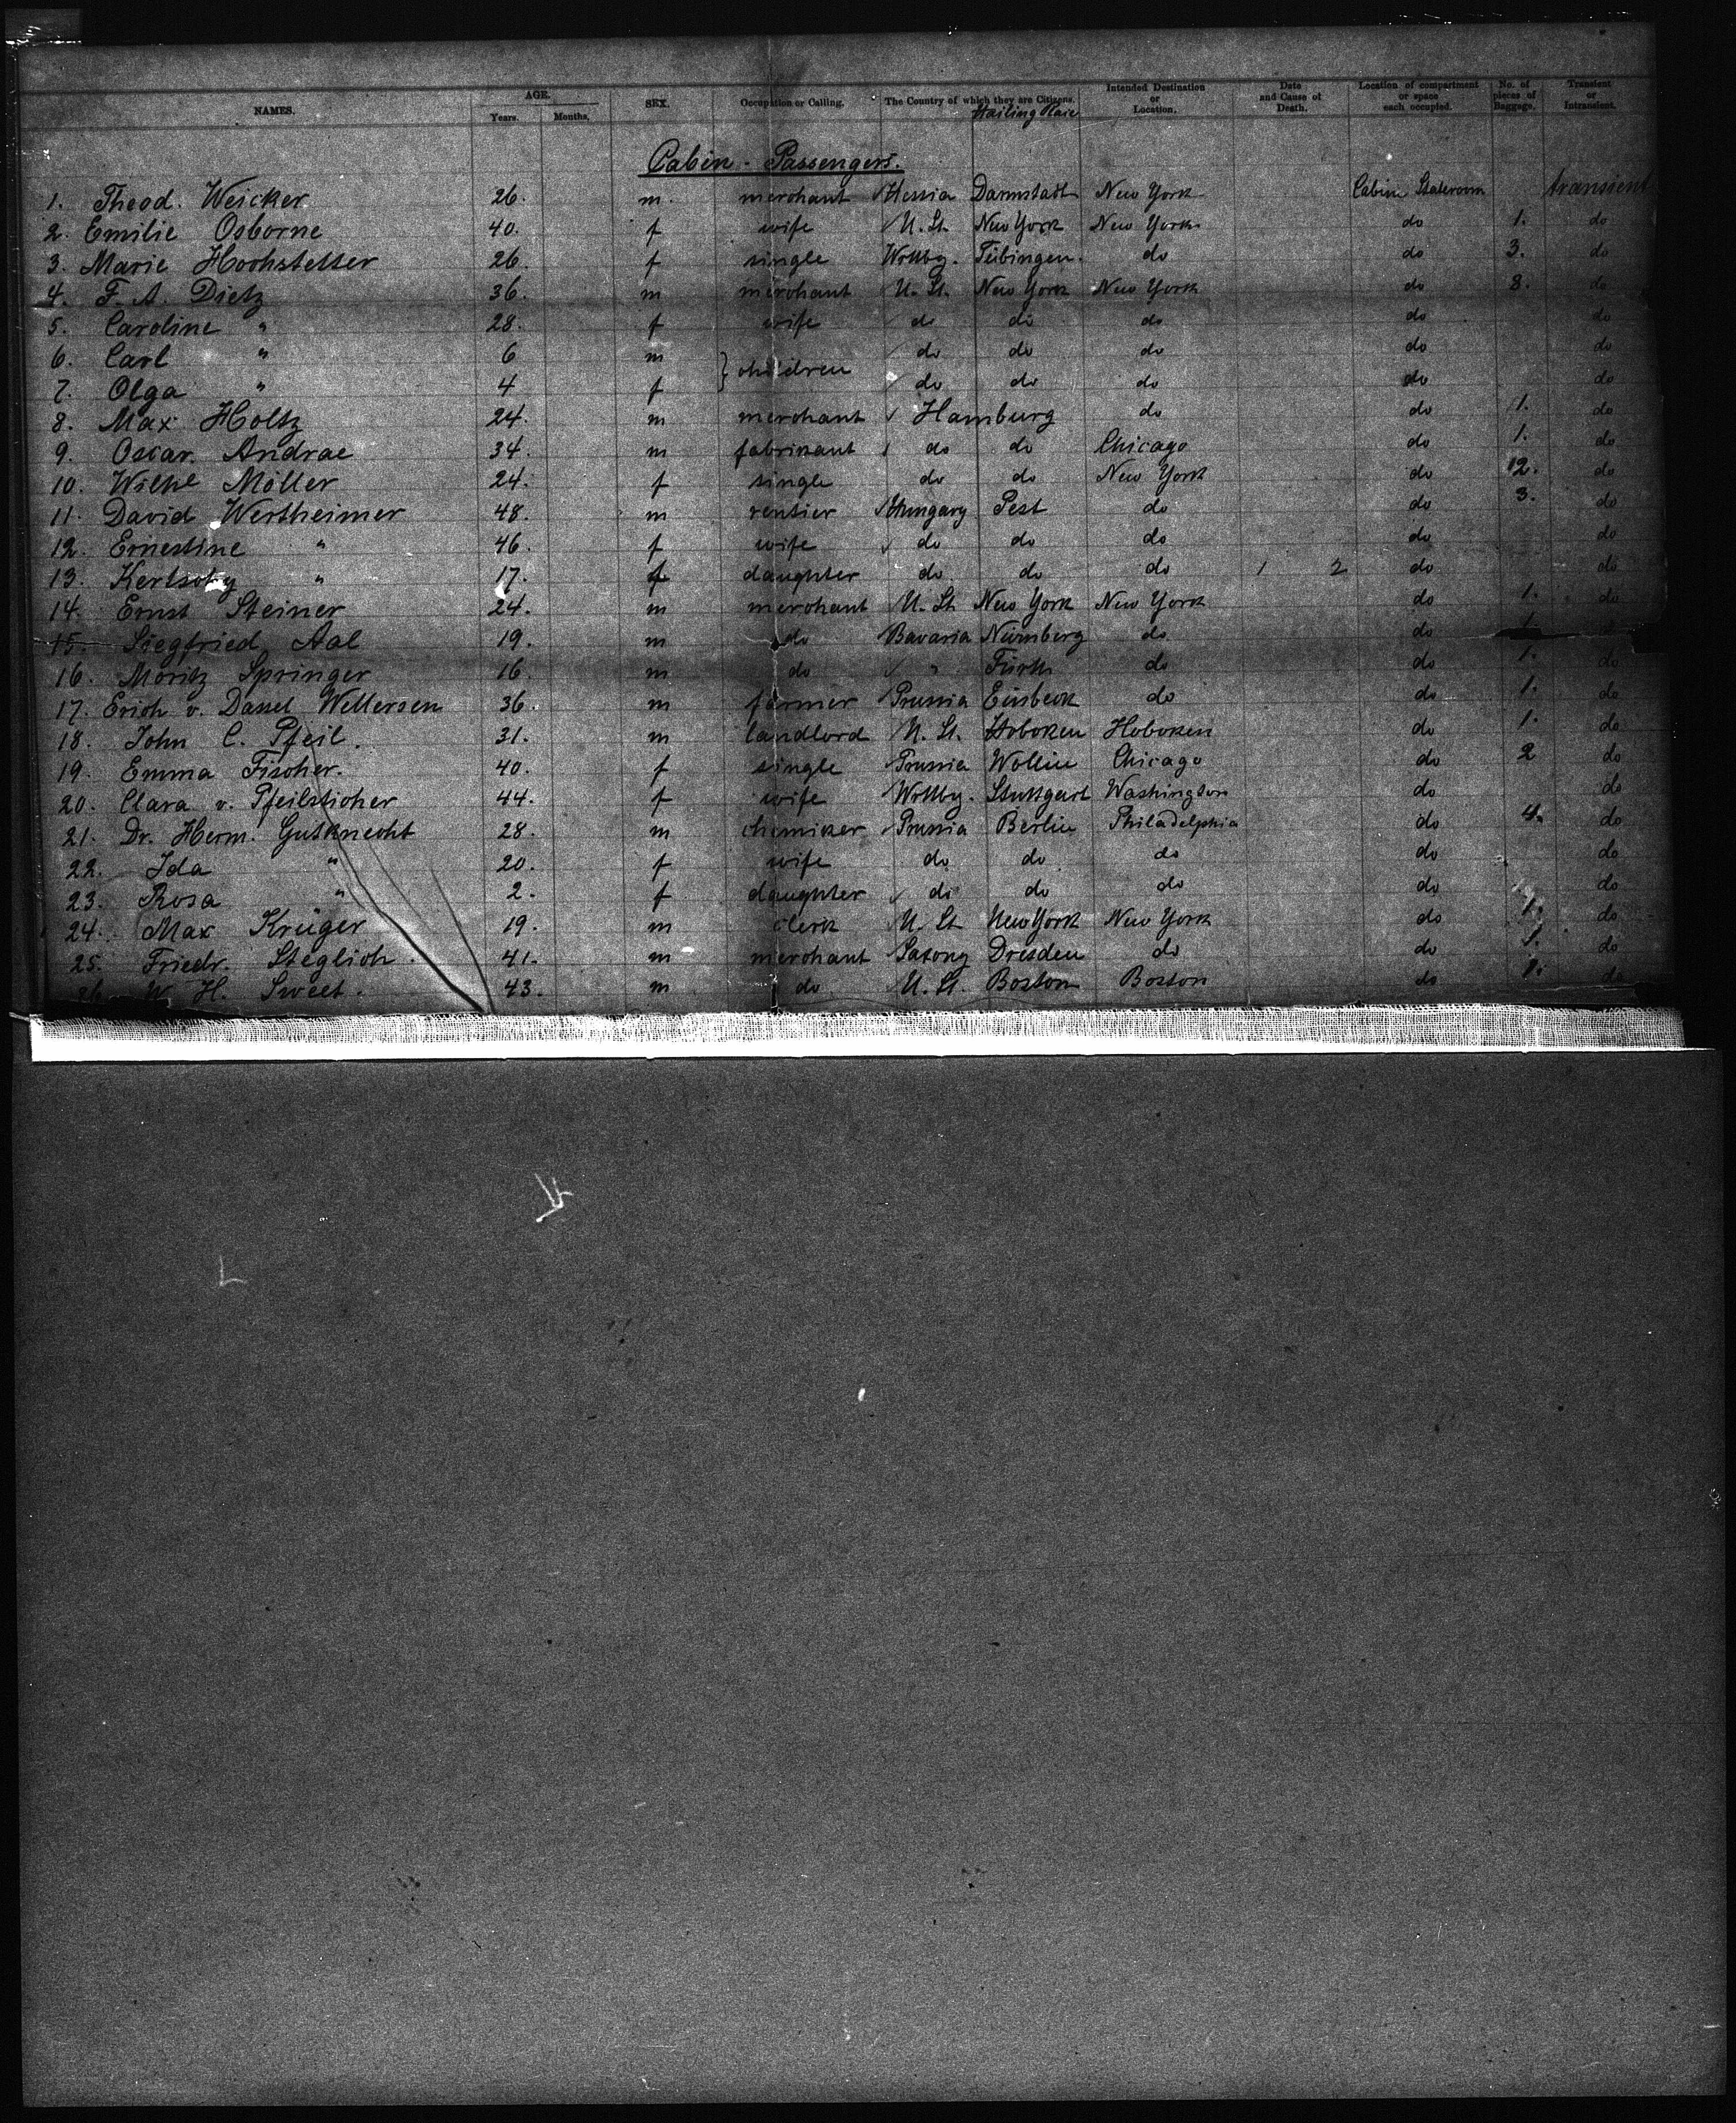 NAMES. AGE. Years. Months. SEX. Occupation or Calling. The Country of which they are Citizens. Hailing Place Intended Destination or Location. Date and Cause of Death. Location of compartment or space each occupied. No. of pieces of Baggage. Transient or Intransient.
Cabin - Passengers.
1. Theod. Weicker 26. m. merchant Hessia Darmstadt New York Cabin Stateroom transient
2. Emilie Osborne 40. f wife U. St. New York New York do 1. do
3. Marie Hochstetter 26. f single Wrttbg. Tübingen. do do 3. do
4. F. A. Dietz 36. m merchant U. St. New York New York do 8. do
5. Caroline " 28. f wife do do do do do
6. Carl " 6 m } children do do do do do
7. Olga " 4 f do do do do do
8. Max Holtz 24. m merchant Hamburg do do 1. do
9. Oscar Andrae 34. m fabrikant do do Chicago do 1. do
10. Wilhe Möller 24. f single do do New York do 12. do
11. David Wertheimer 48. m rentier Hungary Pest do do 3. do
12. Ernestine " 46. f wife do do do do do
13. " 17. f daughter do do do 1 2 do do
14. Ernst Steiner 24. m merchant U. St New York New York do 1. do
15. Siegfried Aal 19. m do Bavaria Nürnberg do do
16. Moritz Springer 16. m do " Fürth do do 1. do
17. Erich v. Dassel Wellersen 36. m farmer Prussia Einbeck do do 1. do
18. John C. Pfeil. 31. m landlord U. St. Hoboken Hoboken do 1. do
19. Emma Fischer. 40. f single Prussia Wollin Chicago do 2 do
20. Clara v. Pfeilsticher 44. f wife Wrttbg. Stuttgart Washington do do
21. Dr. Herm. Gutknecht 28. m chemiker Prussia Berlin Philadelphia do 4. do
22. Ida " 20. f wife do do do do do
23. Rosa " 2. f daughter do do do do do
24. Max Krüger 19. m clerk U. St New York New York do 1. do
25. Friedr. Steglich 41. m merchant Saxony Dresden do do 1. do
26. W. H. Sweet. 43. m do U. St. Boston Boston do 1. do